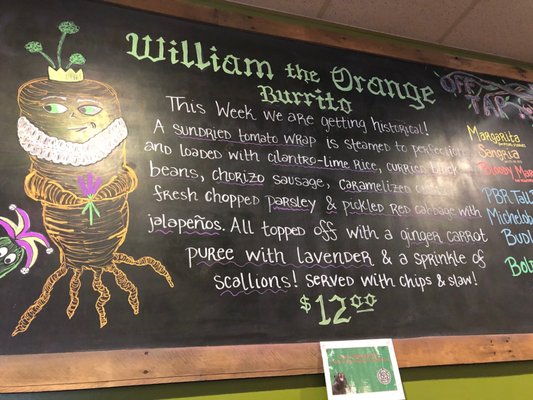 William the Orange
Burrito
This Week we are getting historical!
A sundried tomato wrap is steamed to perfection
and loaded with cilantro-lime rice, curried black
beans, chorizo sausage, caramelized
fresh chopped parsley & pickled red cabbage with
jalapeños. All topped off with a ginger carrot
puree with lavender & a sprinkle of
scallions! served with chips & slaw!
$12.00
OFF
TAP
Margarita
Sangria
Bloody Mar
PBR Tall
Michelob
Budl